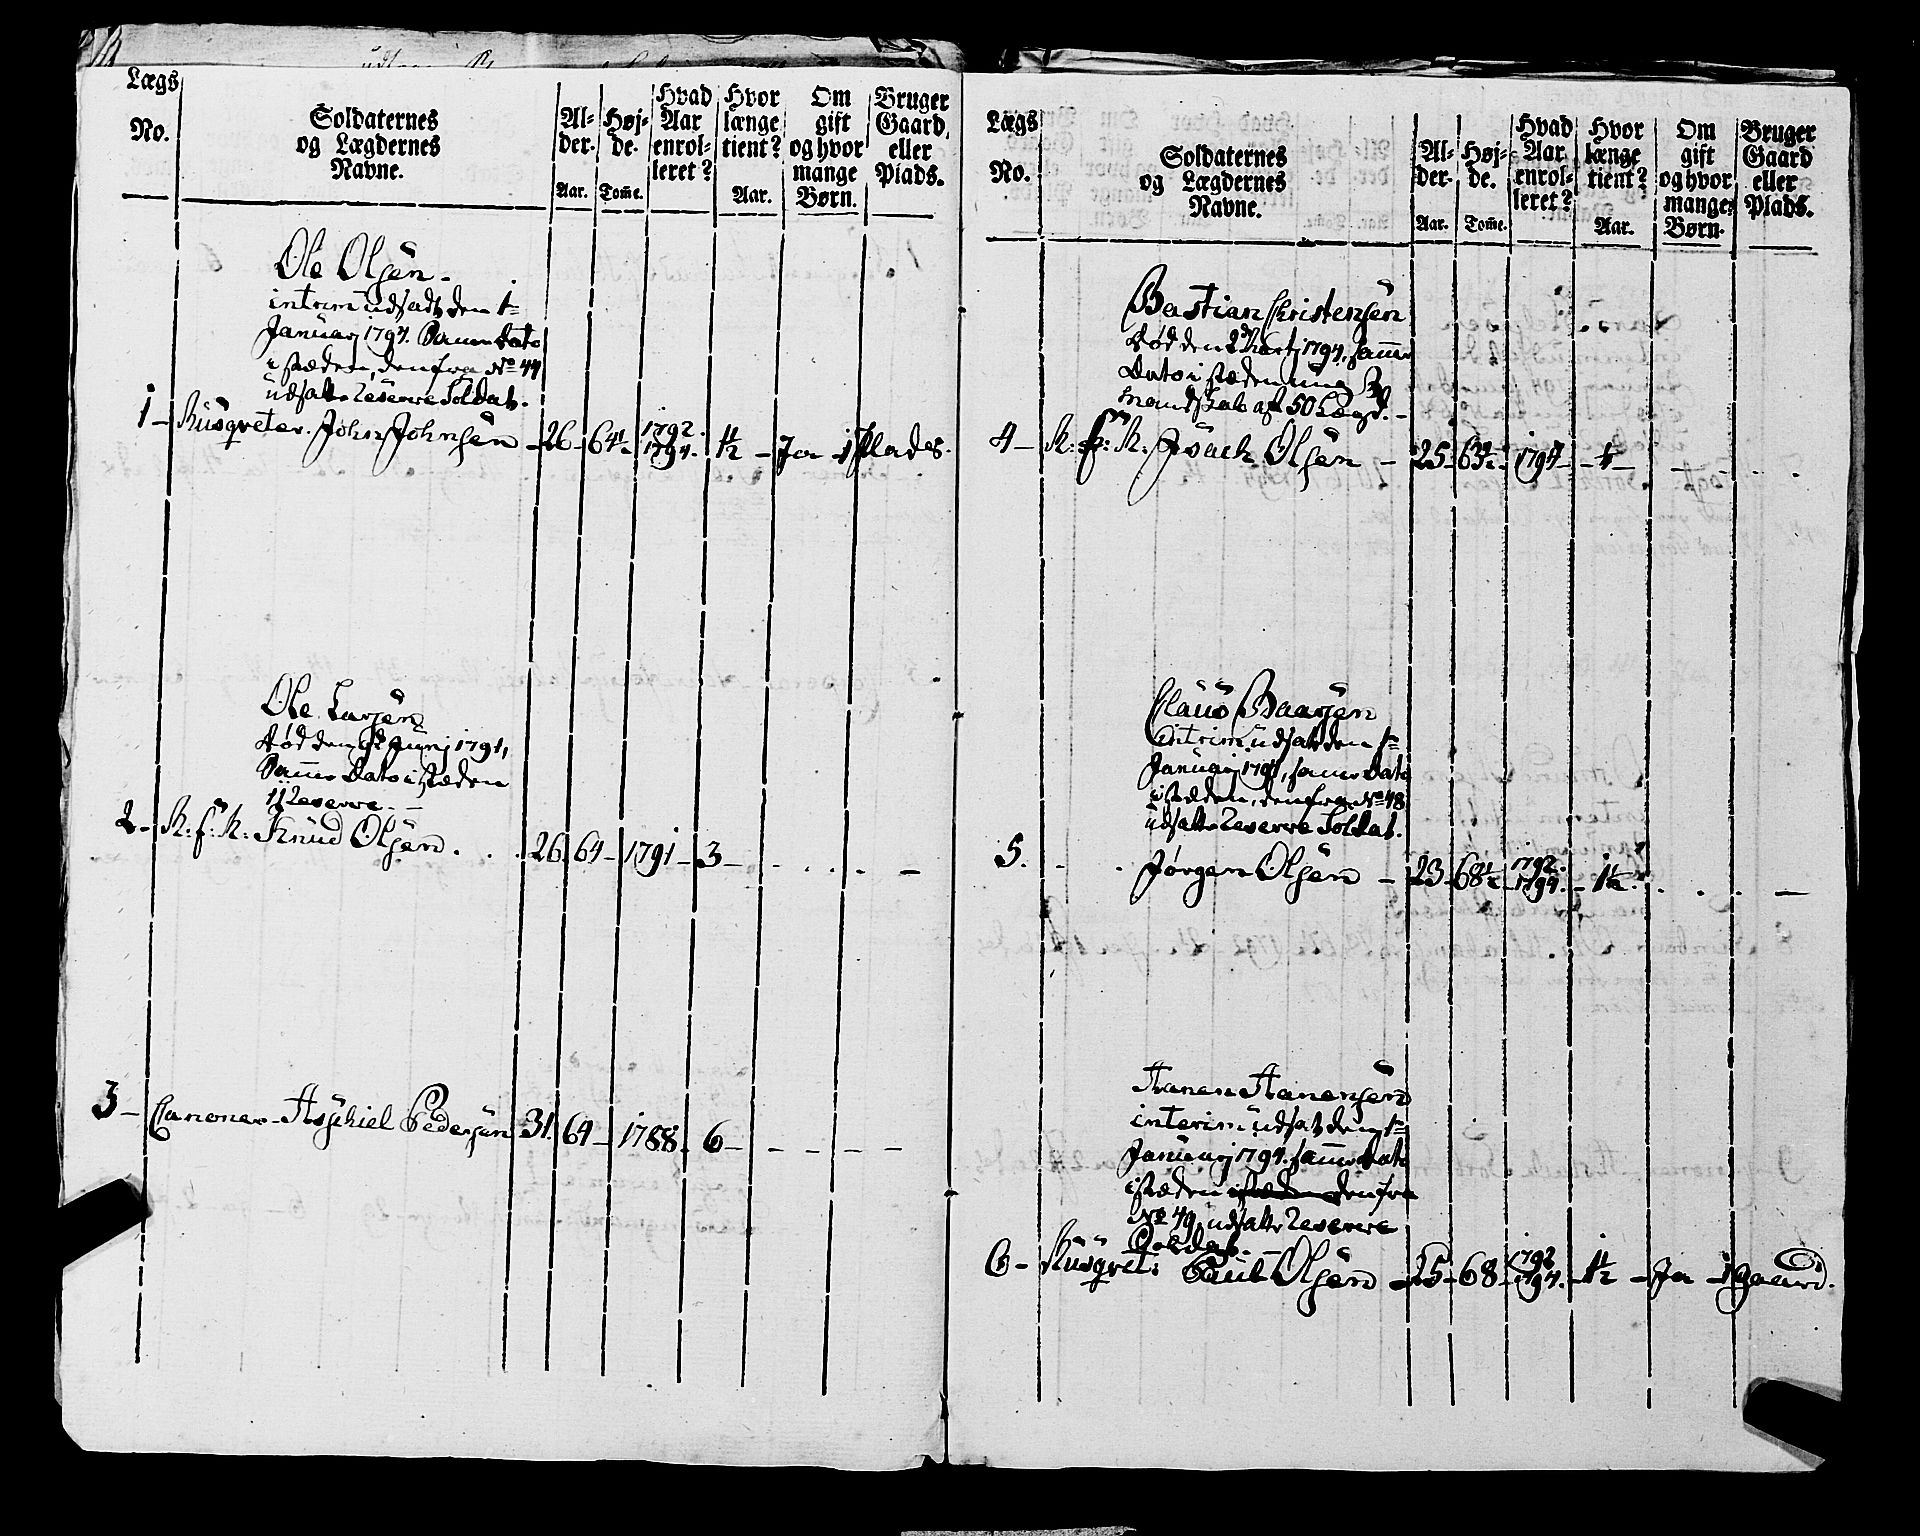 Lægs
No.
Soldaternes
og Lægdernes
Navne.
Al-
der.
Aar.
Høj-
de.
Tom̅e.
Hvad
Aar
enrol-
leret?
Hvor
længe
tient?
Aar.
Om
gift
og hvor
mange
Børn.
Bruger
Gaard,
eller
Plads.
Ole Olsen -
intrim udsadt den 1te
Januarj 1794. Samme Dato
i stæden, den fra No 44
udsatte Reserve Soldat.
1 - Musqveter. John Johnsen - 26 - 64½ 1792. 1794. 1½ - Ja - 1 Plades.
Ole Larsen
død den Junj 1791,
Samme Dato i stæden
Reserve. -
2 - R: f: K: Knud Olsen . . . 26. 64 - 1791 - 3 - . . . . -
3 - Canoner - Aschiel Pedersen 31. 64 - 1788. 6 - - - - -
Lægs
No.
Soldaternes
og Lægdernes
Navne.
Al-
der.
Aar.
Høj-
de.
Tom̅e.
Hvad
Aar
enrol-
leret?
Hvor
længe
tient?
Aar.
Om
gift
og hvor
mange
Børn.
Bruger
Gaard
eller
Plads.
Bastian Christensen
død den Martj 1794, samme
Dato i stæden ung
Mandskab af 50 Lægd. -
4 - R: f: K. Isach Olsen - 25 - 63½. 1794 - - - - -
Claus Baarsen
intrim udsat den 1te
Januarj 1794, samme Dato
i stæden, den fra No 48
udsatte Reserve Soldat.
5. - . Jørgen Olsen - 23 - 68½ 1792. 1794. - 1½ . . . -
Hanen Hanensen
interim udsat den 1te
Januarj 1794. samme Dato
i stæden i stæden den fra
No 49, udsatte Reserve
Soldat. -
6 - Musqvet: Poul Olsen - 25 - 68 - 1792 1794. - 1½ - Ja - 1 gaard.